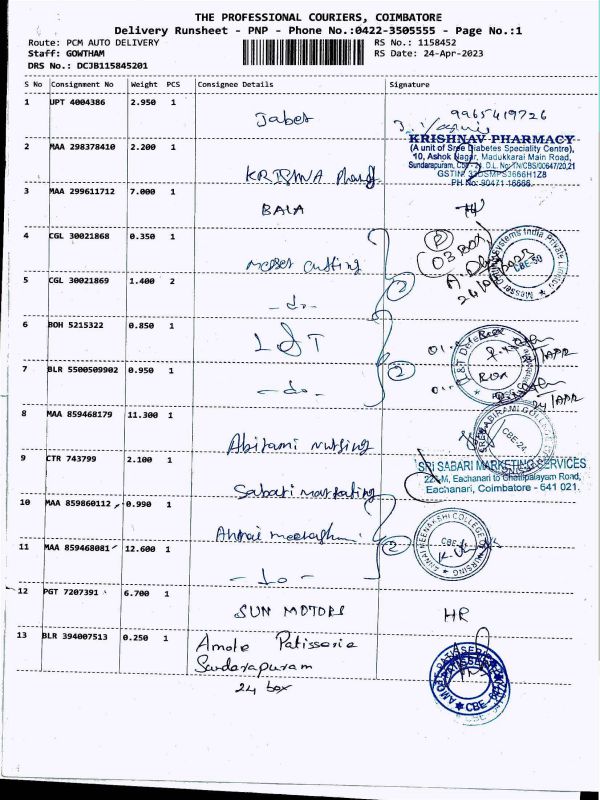 THE PROFESSIONAL COURIERS, COIMBATORE
Delivery Runsheet - PNP - Phone No.:0422-3505555 - Page No.:1
Route: PCM AUTO DELIVERY RS No.: 1158452
Staff: GOWTHAM RS Date: 24-Apr-2023
DRS No.: DCJB115845201
S No Consignment No Weight PCS Consignee Details Signature
1 UPT 4004386 2.950 1
Jabez 9965419726
2 MAA 298378410 2.200 1
KRISHNAV PHARMACY
(A unit of Sree Diabetes Speciality Centre),
10, Ashok Nagar, Madukkarai Main Road,
Sundarapuram, Cbe - 24. D.L. No: TN/CBS/00647/20,21
GSTIN: 33DSMPS3666H1Z8
PH No: 90471 16666
KRISHNA
3 MAA 299611712 7.000 1
BALA
4 CGL 30021868 0.350 1
Messer cutting
(P)
03 BOX
Messer Cutting Systems India Private Limited
CBE-50
5 CGL 30021869 1.400 2
-do-
2
6 BOH 5215322 0.850 1
L&T
01 Box
7 BLR 5500509902 0.950 1
-do-
2
Box
24/APR
8 MAA 859468179 11.300 1
Abirami nursing
CBE-24
9 CTR 743799 2.100 1
Sabari marketing
SRI SABARI MARKETING SERVICES
Eachanari to Chettipalayam Road,
Eachanari, Coimbatore - 641 021.
10 MAA 859860112 0.990 1
Annai meenakshi
11 MAA 859468081 12.600 1
-do-
2
ANNAI MEENAKSHI COLLEGE OF NURSING
12 PGT 7207391 6.700 1
SUN MOTORS HR
13 BLR 394007513 0.250 1
Amole Patisserie
Sundarapuram
24 box